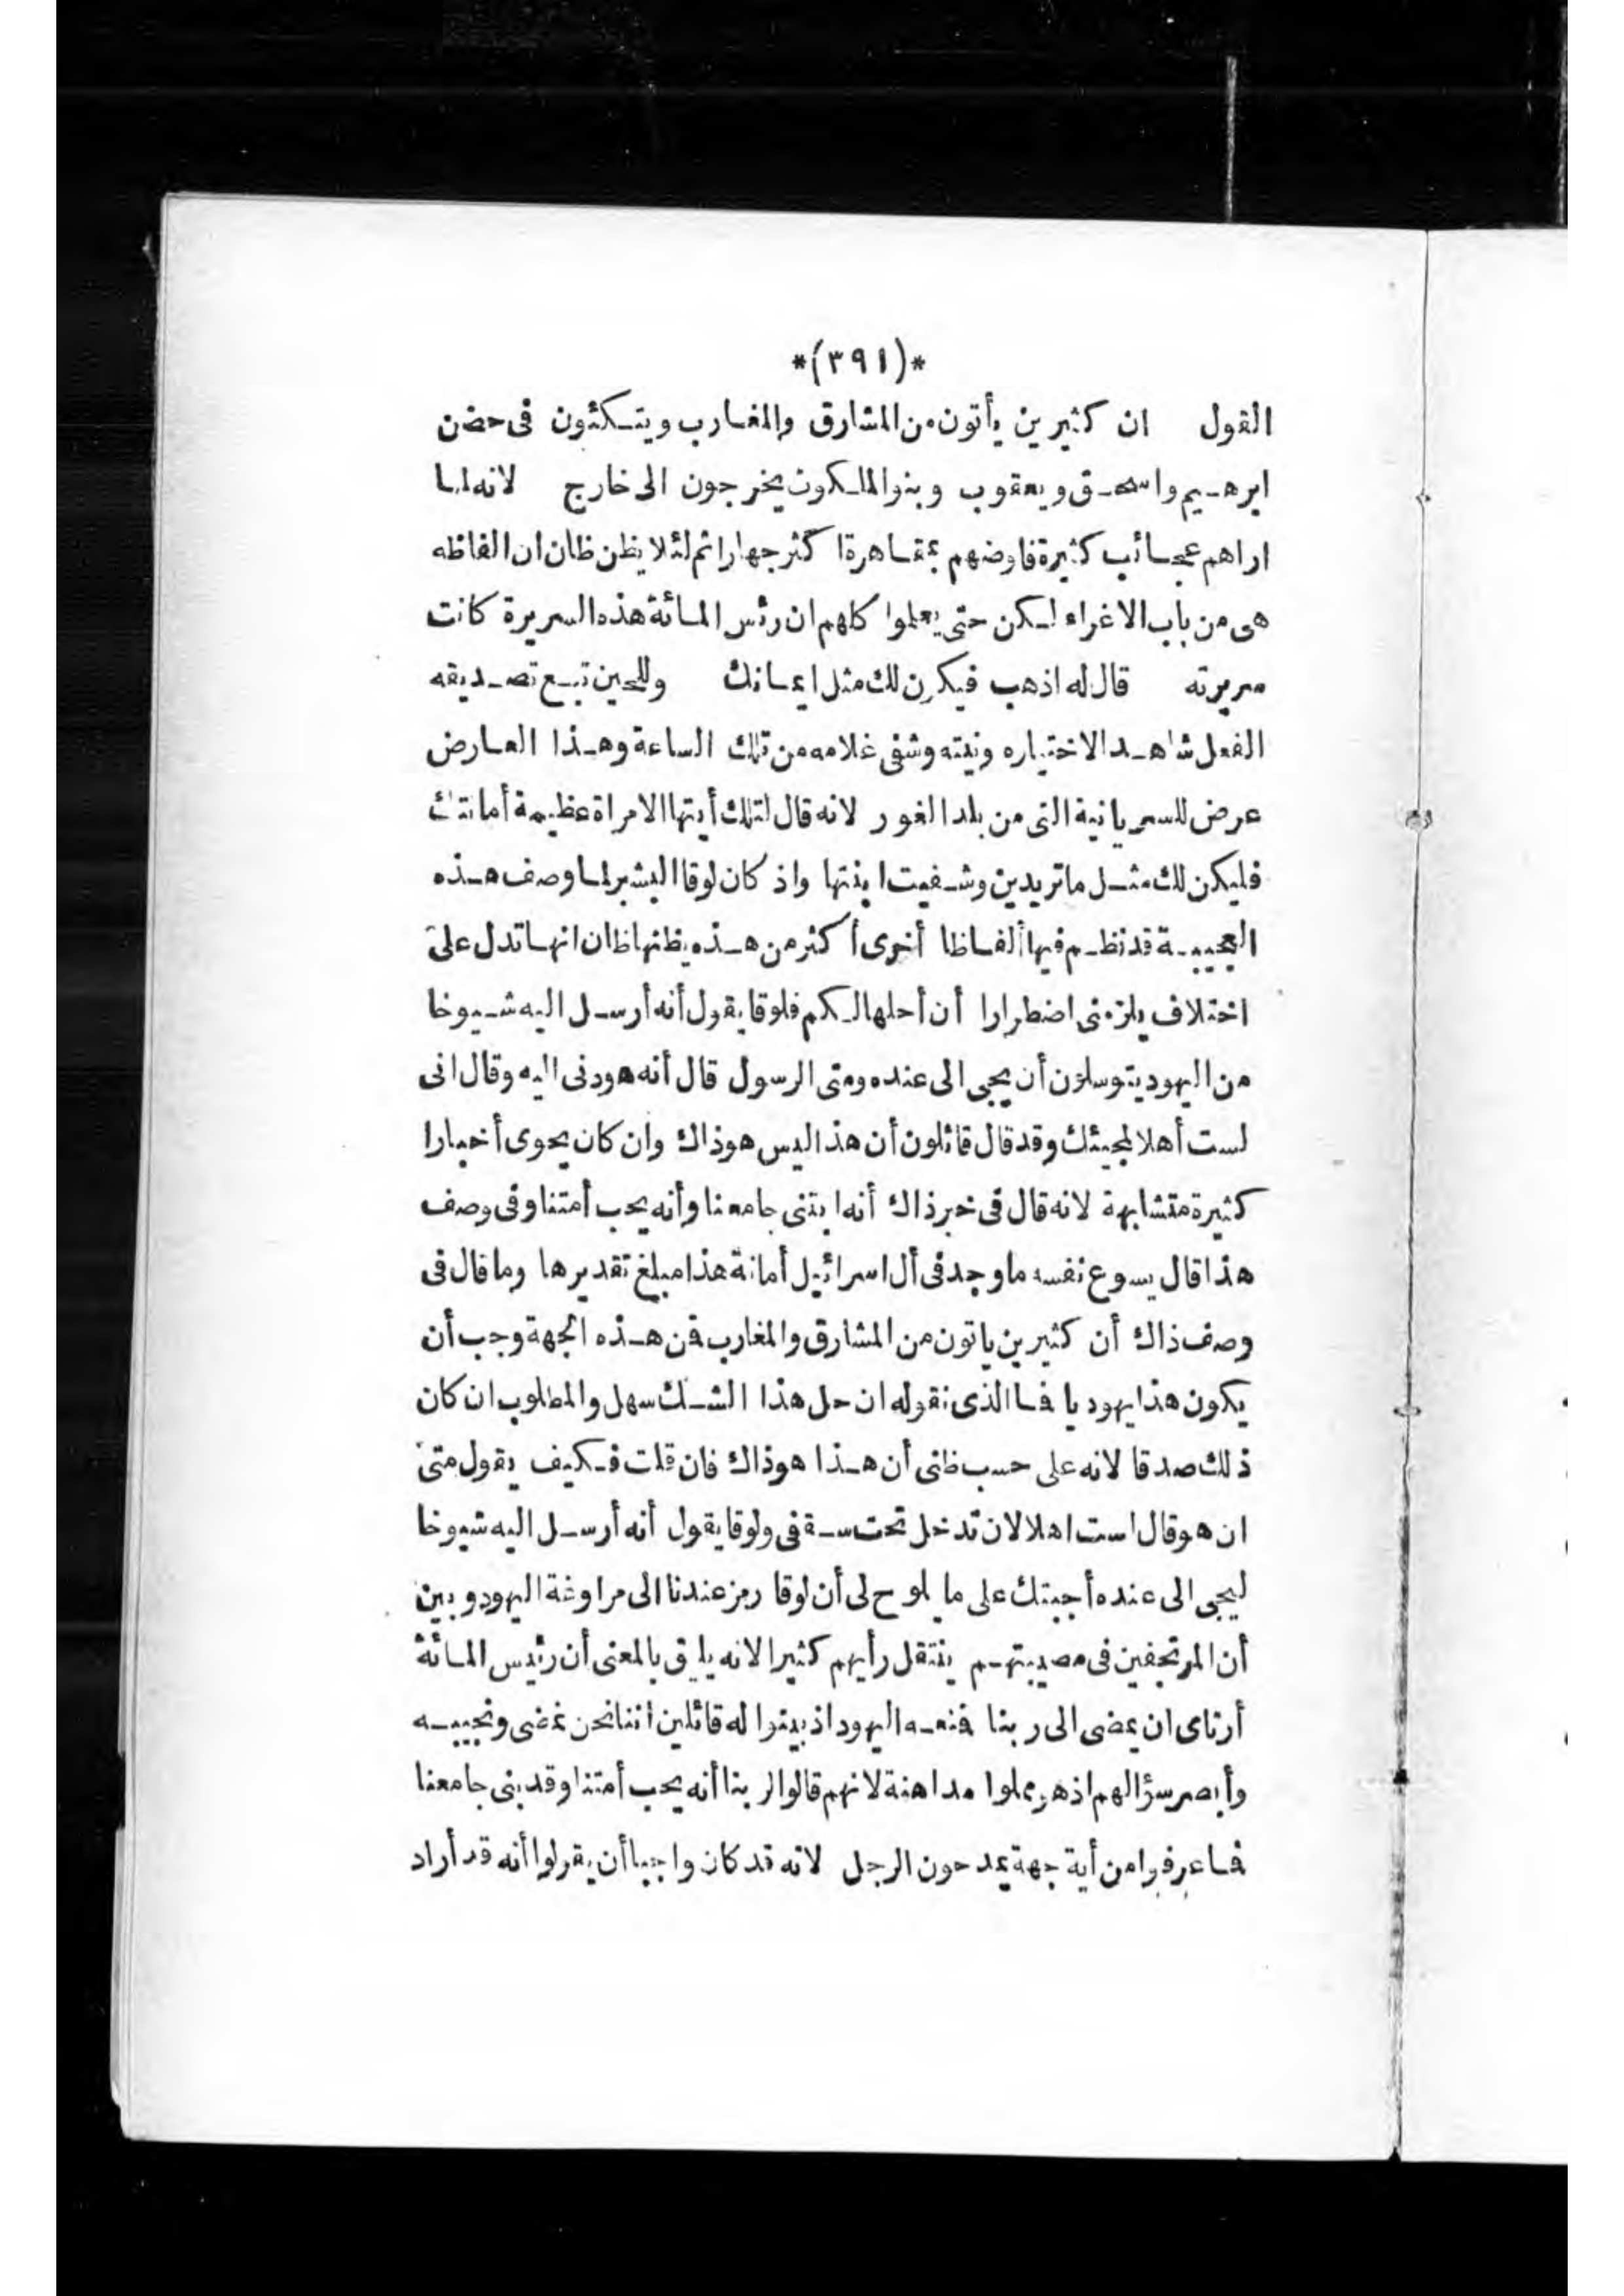 *(٣٩١)*
القول ان كثيرين يأتون من المشارق والمغارب ويتكئون فى حضن
ابرهيم واسحق ويعقوب وبنو الملكوت يخرجون الى خارج لانه لما
اراهم عجائب كثيرة فاوضهم بمقاهرة اكثر جهارا ثم لئلا يظن ظان ان الفاظه
هى من باب الاغراء لكن حتى يعلموا كلهم ان رئس المائة هذه السريرة كانت
سريرته قال له اذهب فيكون لك مثل ايمانك وللحين تبع تصديقه
الفعل شاهدا لاختياره ونيته وشفى غلامه من تلك الساعة وهذا العارض
عرض للسريانية التى من بلد الغور لانه قال لتلك أيتها الامراة عظيمة أمانتك
فليكن لك مثل ماتريدين وشفيت ابنتها واذ كان لوقا البشير لما وصف هذه
العجيبة قد نظم فيها ألفاظا أخرى أكثر من هذه يظنها ظان انها تدل على
اختلاف يلزمنى اضطرارا أن أحلها لكم فلوقا يقول أنه أرسل اليه شيوخا
من اليهود يتوسلون أن يجى الى عنده ومتى الرسول قال أنه هو دنى اليه وقال انى
لست أهلا لمجيئك وقد قال قائلون أن هذا ليس هو ذاك وان كان يحوى أخبارا
كثيرة متشابهة لانه قال فى خبر ذاك أنه ابتنى جامعنا وأنه يحب أمتنا وفى وصف
هذا قال يسوع نفسه ماوجد فى أل اسرائيل أمانة هذا مبلغ تقديرها وما قال فى
وصف ذاك أن كثيرين ياتون من المشارق والمغارب فمن هذه الجهة وجب أن
يكون هذا يهوديا فما الذى نقوله ان حل هذا الشك سهل والمطلوب ان كان
ذلك صدقا لانه على حسب ظنى أن هذا هو ذاك فان قلت فكيف يقول متى
ان هو قال لست اهلا لان تدخل تحت سقفى ولوقا يقول أنه أرسل اليه شيوخا
ليجى الى عنده أجبتك على ما يلوح لى أن لوقا رمز عندنا الى مراوغة اليهود وبين
أن المرتجفين فى مصيبتهم ينتقل رأيهم كثيرا لانه يليق بالمعنى أن رئيس المائة
أرتاى ان يمضى الى ربنا فمنعه اليهود اذ بينوا له قائلين اننا نحن نمضى ونجيبه
وأبصر سؤالهم اذ هو مملوا مداهنة لانهم قالوا لربنا أنه يحب أمتنا وقد بنى جامعنا
فما عرفوا من أية جهة يمدحون الرجل لانه قد كان واجبا أن يقولوا أنه قد أراد